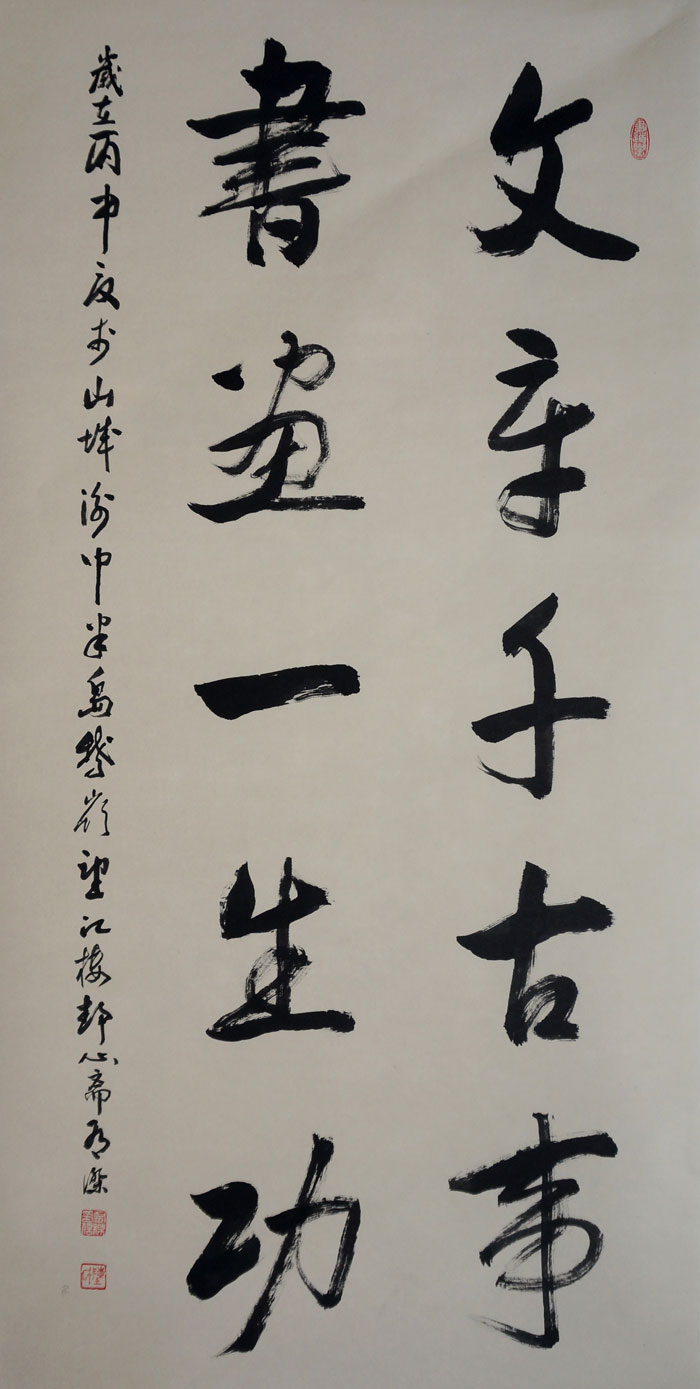 文章千古事
書畫一生功
歲在丙申夏於山城渝中半島鵝嶺望江樓靜心齋